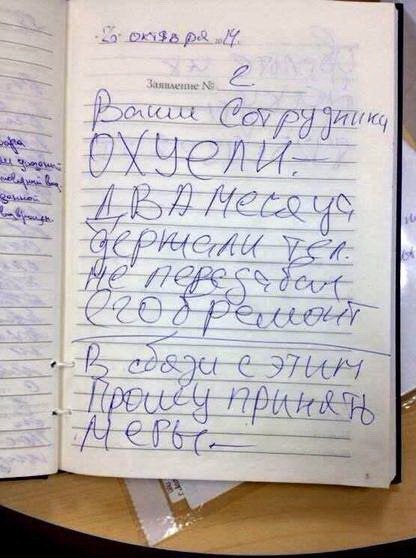 26 октября 2014.
Заявление № 2
Ваши Сотрудники
ОХУЕЛИ.-
ДВА месяца
держали тел.
Не передавая
его в ремонт
В связи с этим
Прошу принять
Меры.-